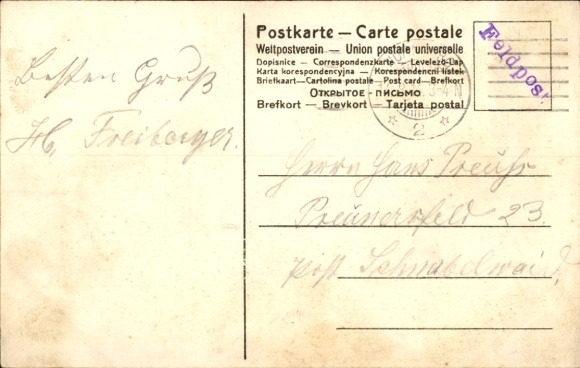 Besten Gruß
H. Freiberger.
Postkarte — Carte postale
Weltpostverein — Union postale universelle
Dopisnice — Correspondenzkarte — Levelező-Lap
Karta korespondencyjna — Korespondencni listek
Briefkaart — Cartolina postale Post card — Brefkort
Открытое - письмо
Brefkort — Brevkort — Tarjeta postal
Feldpost.
3-4 N
2
Herrn Hans Preuhs
Preunersfeld 23.
Post Schnabelwaid,